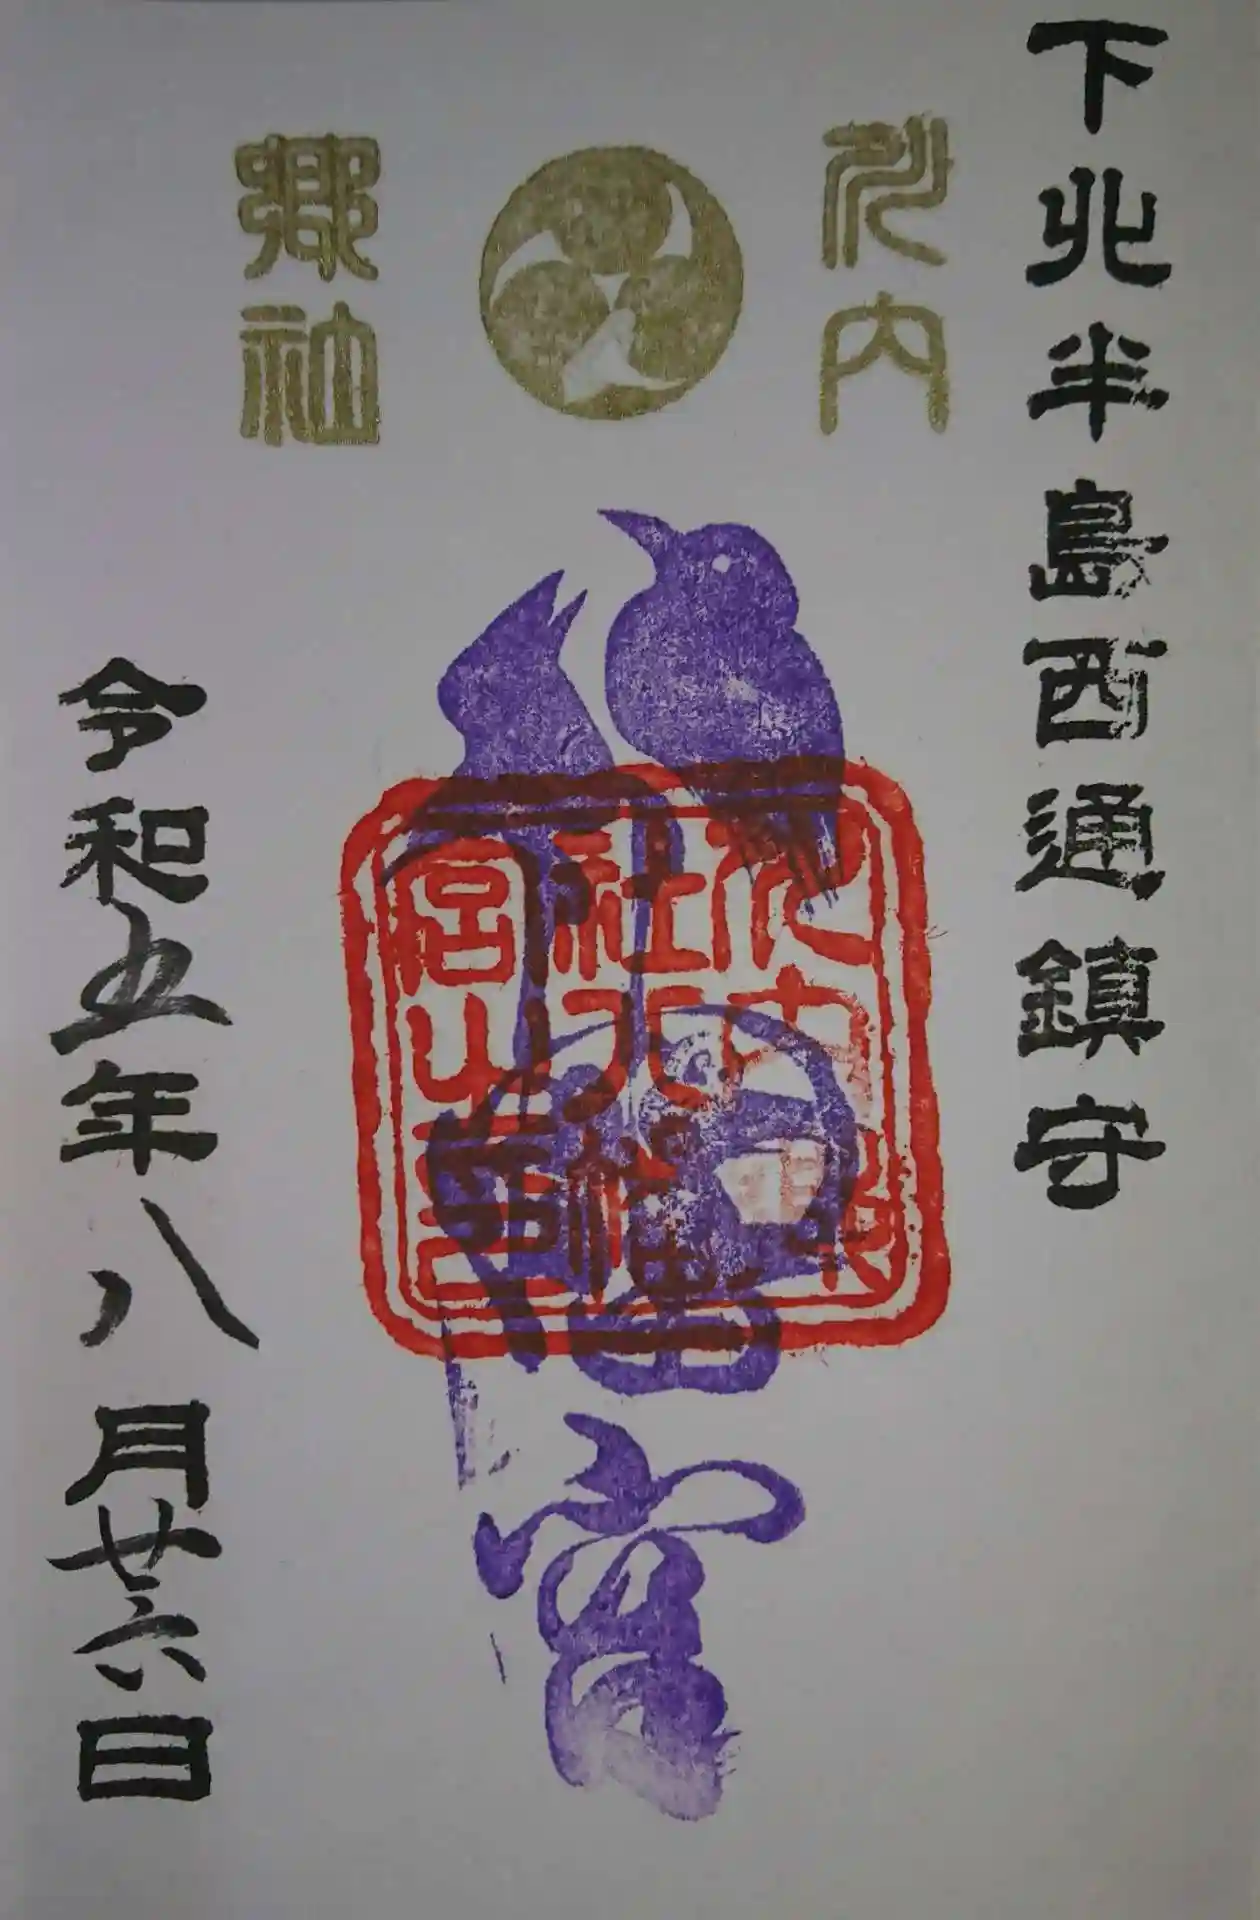 下北半島西通鎮守
川内
郷社
八幡宮
川内郷
社八幡
宮山印
令和五年八月廿六日